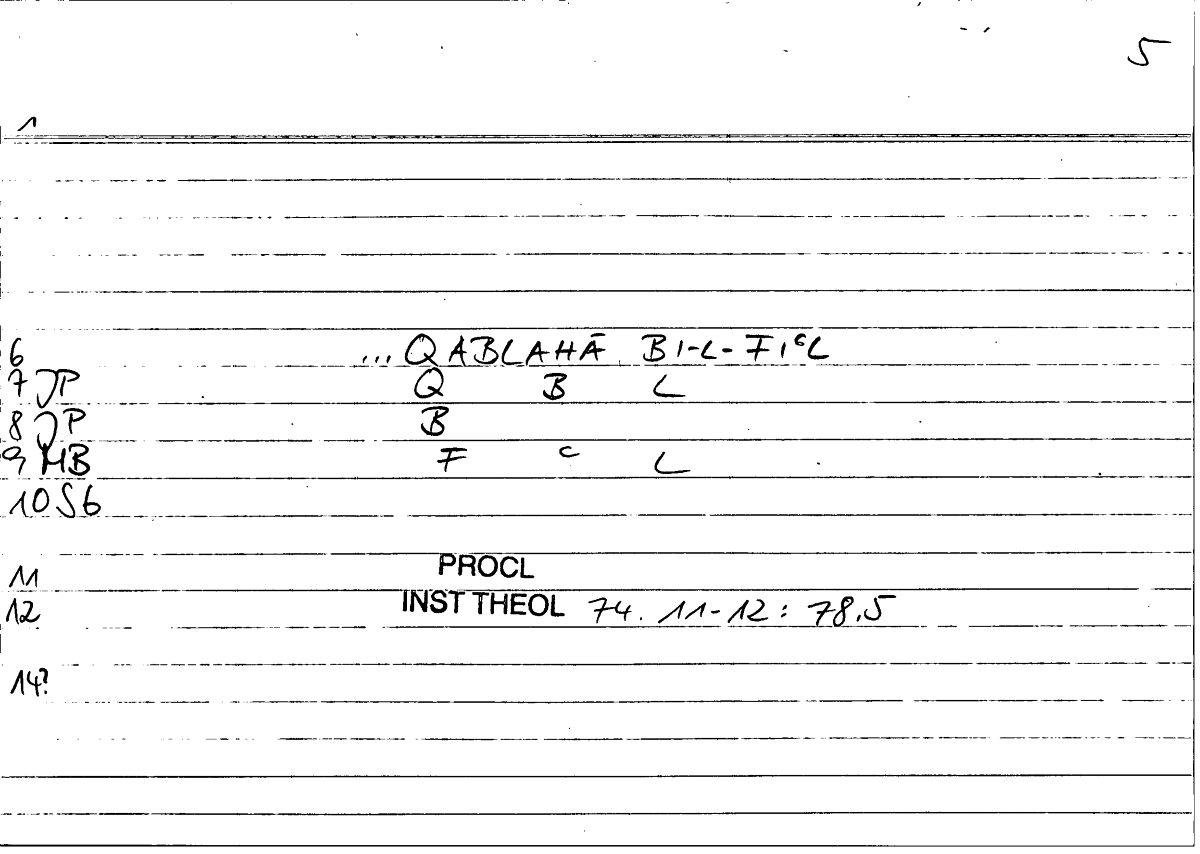 5
1
6 ... QABLAHĀ BI-L-FIᶜL
7 JP Q B L
8 JP B
9 MB F ᶜ L
10 S6
11 PROCL
12 INST THEOL 74. 11-12: 78.5
14?